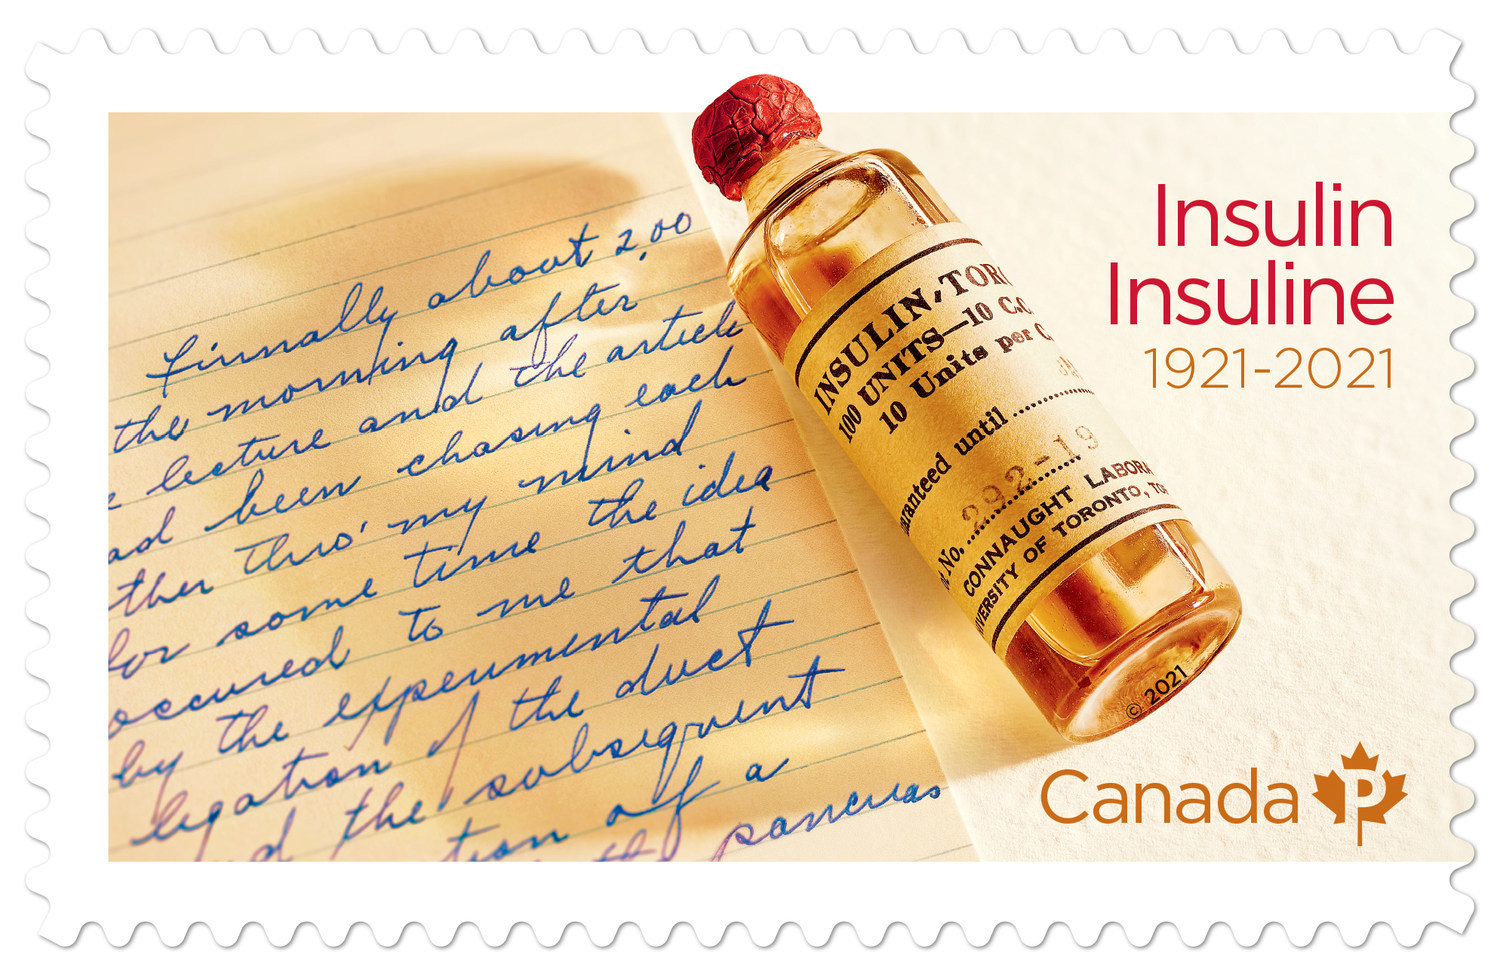 finnally about 2,00
the morning after
lecture and the article
ad been chasing each
ther thro' my mind
for some time the idea
occured to me that
by the experimental
ligation of the duct
d the subsequent
tion of a
pancreas
INSULIN, TORO
100 UNITS—10 C.C.
10 Units per C
aranteed until
292-19
No.
CONNAUGHT LABORA
VERSITY OF TORONTO, TO
© 2021
Insulin
Insuline
1921-2021
Canada P